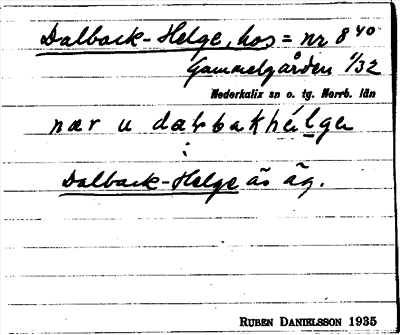 Dalback-Helge, hos = nr 8⁴⁰
Gammelgården 1/32
Nederkalix sn o. tg. Norrb. län
nær u dalbakhélge
:
Dalback-Helge äs äg.
RUBEN DANIELSSON 1935